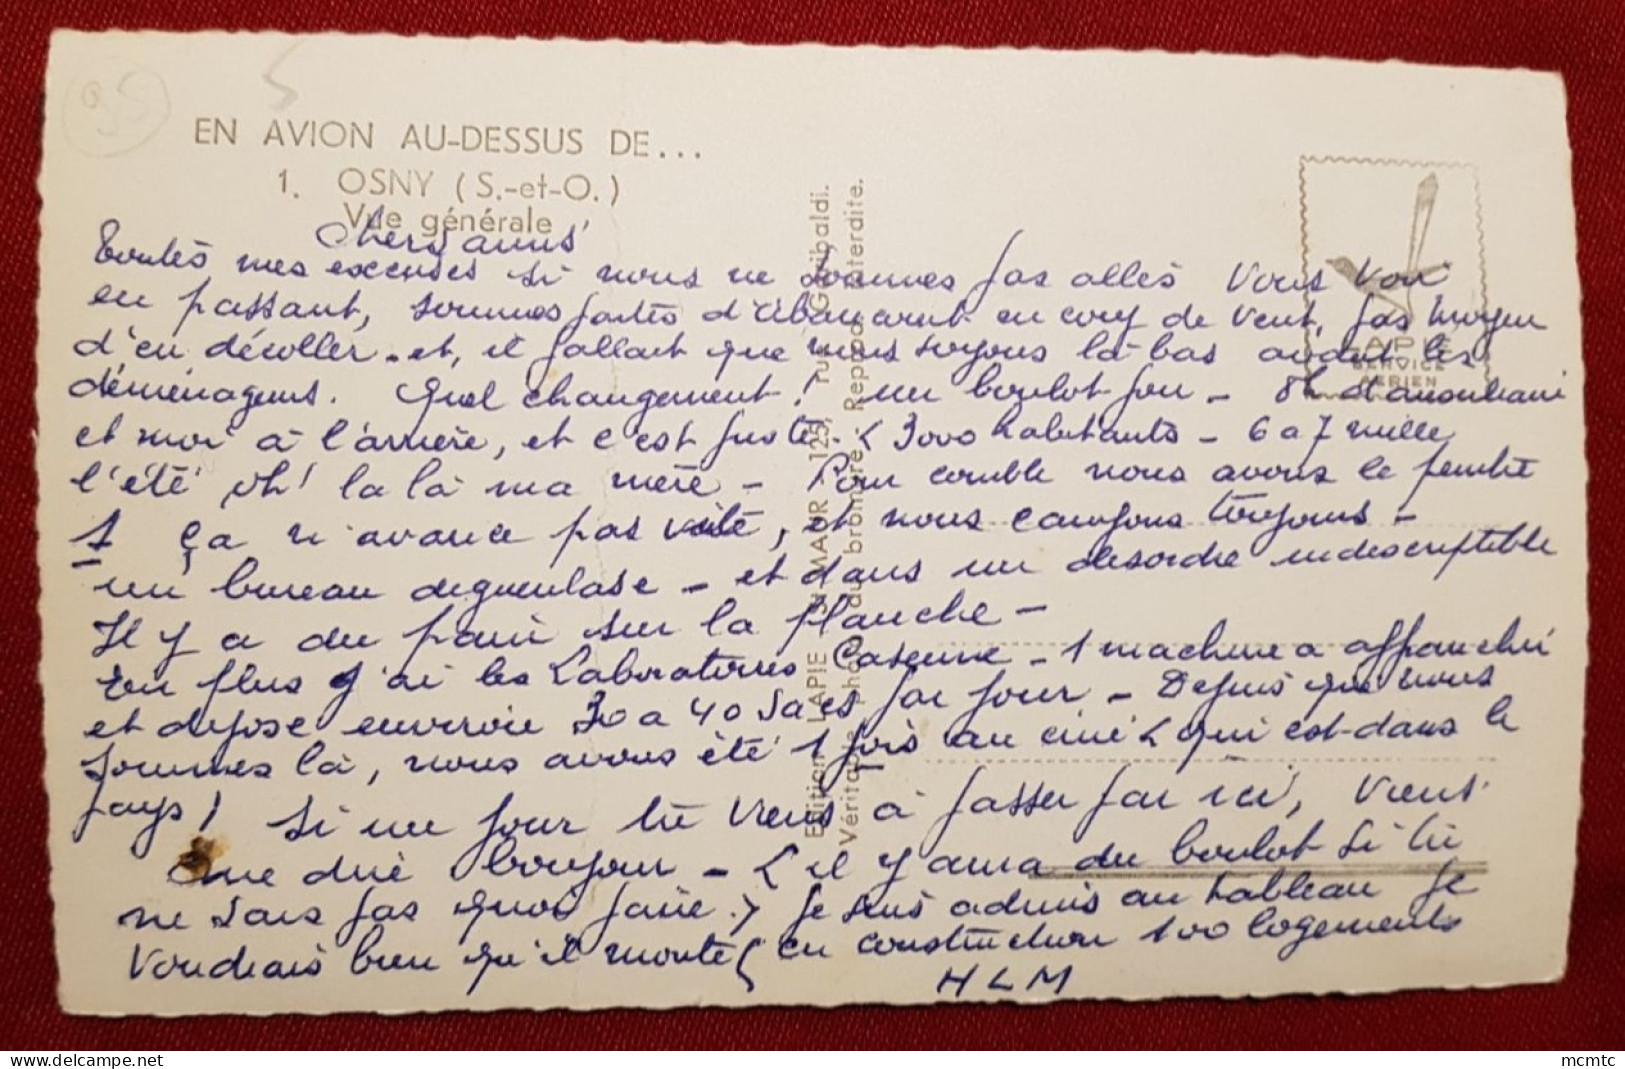 95
EN AVION AU-DESSUS DE...
1. OSNY (S.-et-O.)
Vue générale
Chers amis
Toutes mes excuses si nous ne sommes pas allés vous voir
en passant, sommes partis d'ébancourt en coup de vent, pas moyen
d'en décoller - et, il fallait que nous soyons là-bas avant les
déménageurs. Quel changement! un boulot fou - 8h
et moi à l'arrière, et c'est juste. < 3000 habitants - 6 a 7 mille
l'été oh! la la ma mère - Pour comble nous avons le peintre
1 ça n'avance pas vite, et nous campons toujours -
un bureau degueulasse - et dans un desordre indescriptible
Il y a du pain sur la planche -
En plus j'ai les Laboratoires - 1 machine a affranchir
et depose environ 30 a 40 sacs par jour - Depuis que nous
sommes là, nous avons été 1 fois au ciné < qui est dans le
pays! Si un jour tu viens à passer par ici, viens
me dire bonjour - < il y aura du boulot si tu
ne sais pas quoi faire > Je suis admis au tableau Je
voudrais bien qu'il monte < en construction 100 logements
HLM
Edition LAPIE ST-MAUR 125, rue Garibaldi.
Véritable photo au bromure - Reprod. interdite.
LAPIE
SERVICE
AERIEN
delcampe.net
mcmtc